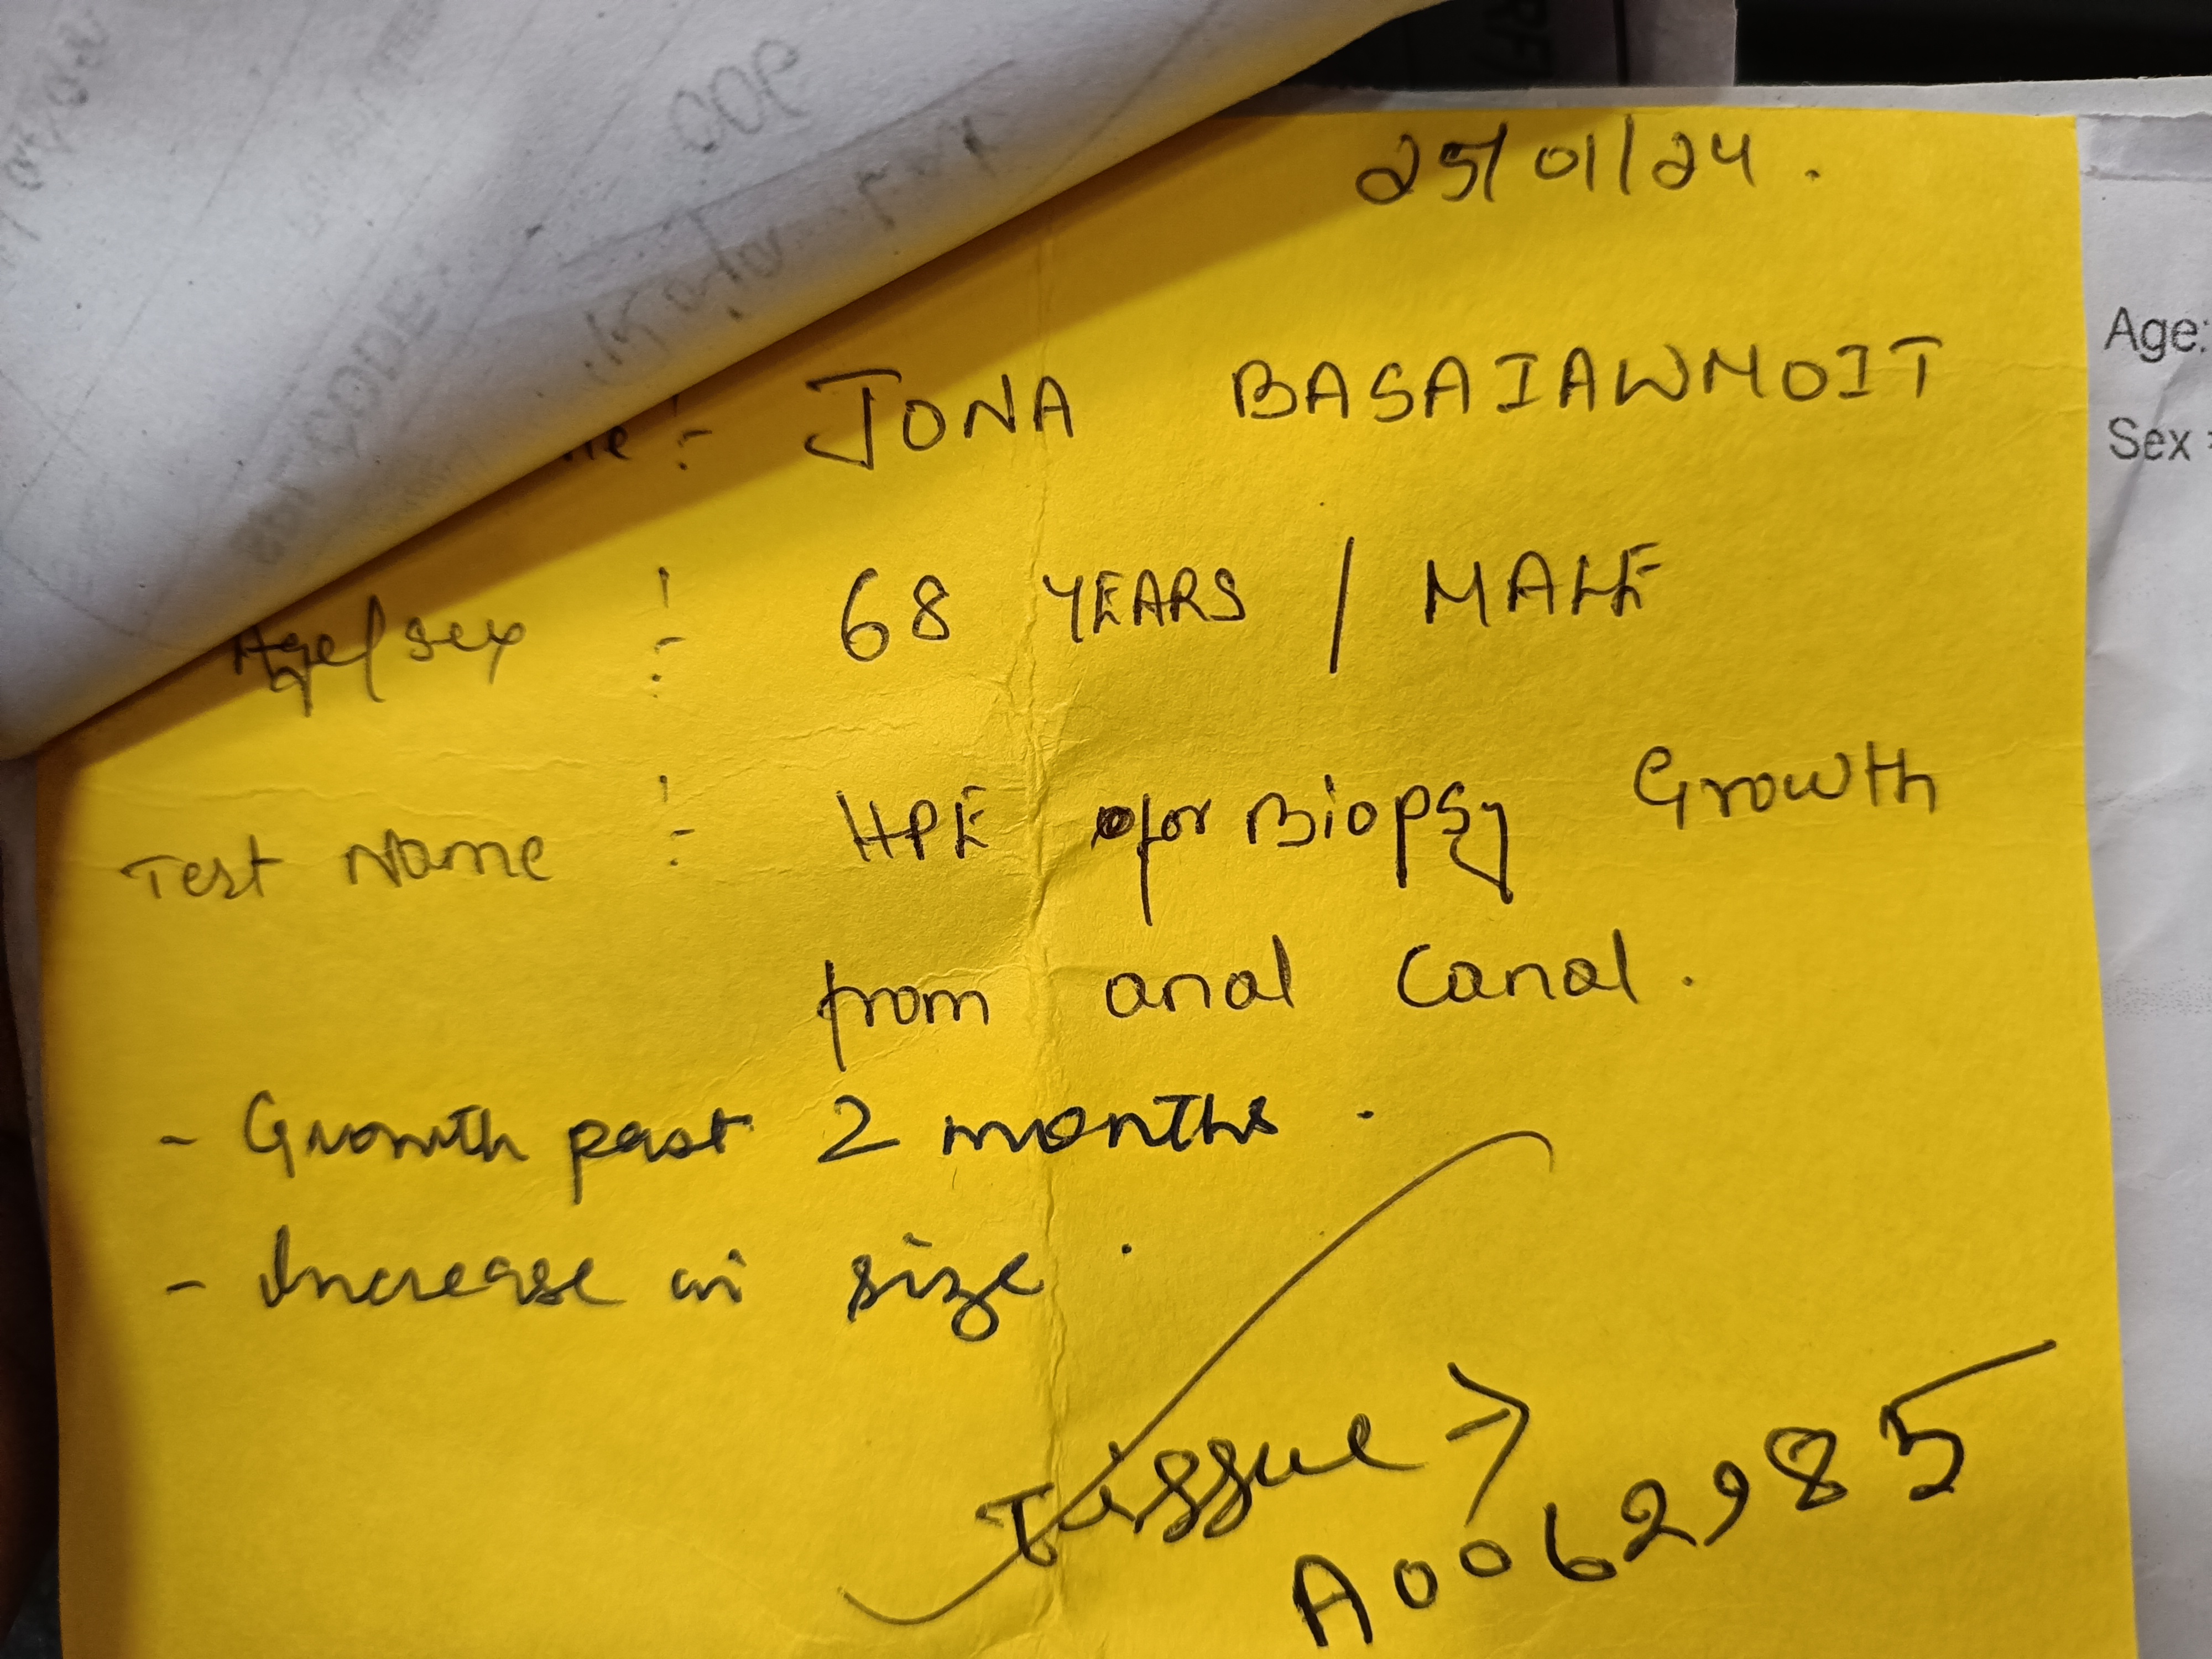 25/01/24.
: JONA BASAIAWMOIT
Age/sex : 68 YEARS / MALE
Test Name : HPE for Biopsy Growth
from anal Canal.
- Growth past 2 months.
- Increase in size.
Tissue →
A0062985
Age:
Sex :
CODE